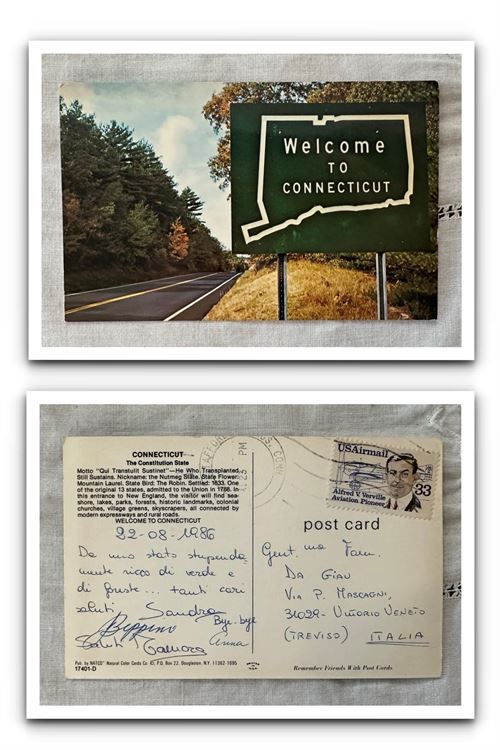 Welcome
TO
CONNECTICUT
CONNECTICUT
The Constitution State
Motto "Qui Transtulit Sustinet"—He Who Transplanted
Still Sustains. Nickname: the Nutmeg State. State Flower:
Mountain Laurel. State Bird: The Robin. Settled: 1633. One
of the original 13 states, admitted to the Union in 1788. In
this entrance to New England, the visitor will find sea-
shore, lakes, parks, forests, historic landmarks, colonial
churches, village greens, skyscrapers, all connected by
modern expressways and rural roads.
WELCOME TO CONNECTICUT
22-08-1986
Da uno stato stupenda
mente ricco di verde e
di foreste... tanti cari
saluti Sandra
Beppino Bye-bye
Saluti Tamara Anna
Pub. by NATCO Natural Color Cards Co. P.O. Box 22, Douglaston, N.Y. 11362-1695
17401-D
PM
USAirmail
Alfred V. Verville
Aviation Pioneer
33
post card
Gent.ma Fam.
DA GIAU
VIA P. MASCAGNI,
31029 - VITTORIO VENETO
(TREVISO) ITALIA
Remember Friends With Post Cards